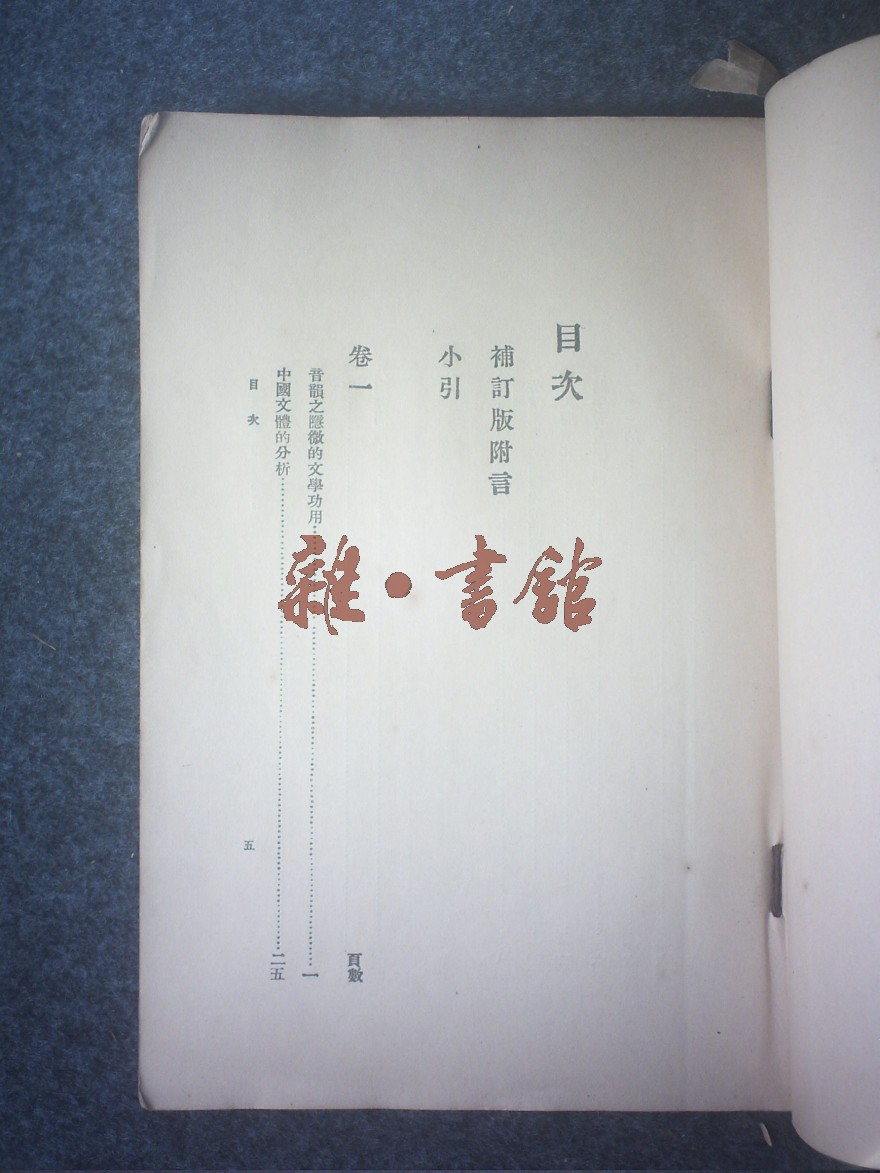 目次
補訂版附言
小引
卷一 頁數
音韻之隱微的文學功用……一
中國文體的分析……二五
目次 五
雜·書館